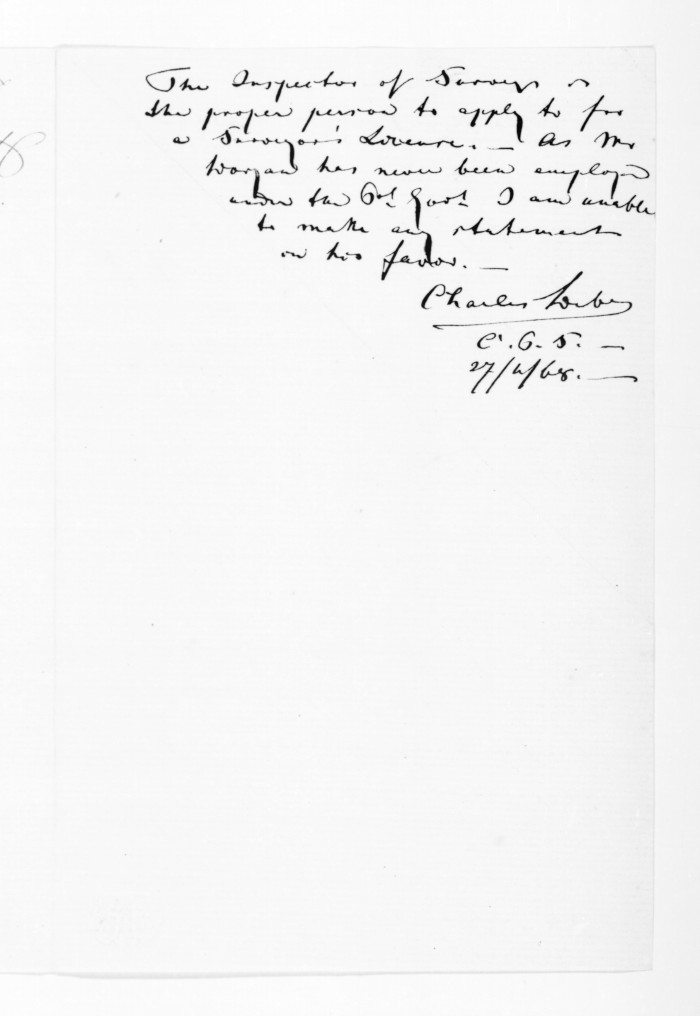 The Inspector of Surveys is
the proper person to apply to for
a Surveyor's License. — As Mr
Worgan has never been employed
under the Govt I am unable
to make any statement
in his favor. —
Charles Weber
C. G. S. —
27/4/68. —